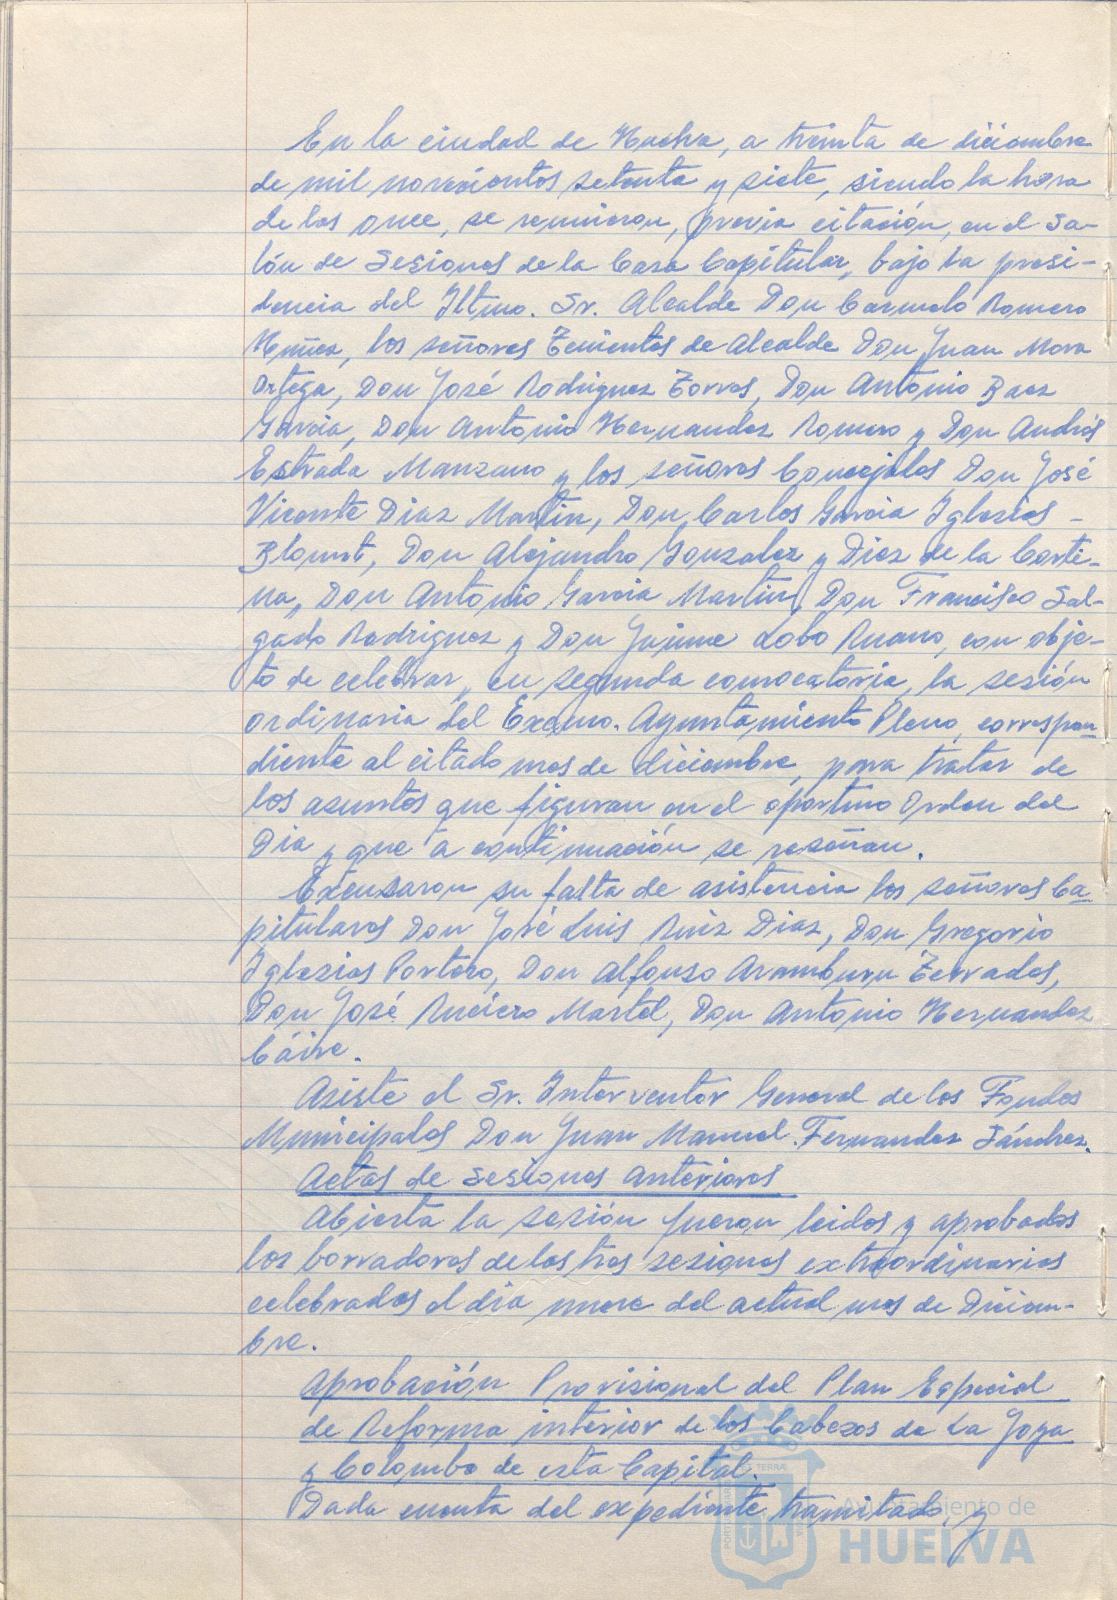 En la ciudad de Huelva, a treinta de diciembre
de mil novecientos setenta y siete, siendo la hora
de las once, se reunieron, previa citación, en el Sa-
lón de Sesiones de la Casa Capitular, bajo la presi-
dencia del Iltmo. Sr. Alcalde Don Carmelo Romero
Nuñez, los señores Tenientes de Alcalde Don Juan Mora
Ortega, Don José Rodriguez Torres, Don Antonio Baez
Garcia, Don Antonio Hernandez Romero y Don Andrés
Estrada Manzano y los señores Concejales Don José
Vicente Diaz Martin, Don Carlos Garcia Iglesias-
Blount, Don Alejandro Gonzalez y Diez de la Corti-
na, Don Antonio Garcia Martin, Don Francisco Sal-
gado Rodriguez y Don Jaime Lobo Ruano, con obje-
to de celebrar, en segunda convocatoria, la sesión
ordinaria del Excmo. Ayuntamiento Pleno, correspon-
diente al citado mes de diciembre, para tratar de
los asuntos que figuran en el oportuno Orden del
Dia y que a continuación se reseñan.
Excusaron su falta de asistencia los señores Ca-
pitulares Don José Luis Ruiz Diaz, Don Gregorio
Iglesias Portero, Don Alfonso Aramburu Terrades,
Don José Ruciero Martel, Don Antonio Hernandez
Cáire.
Asiste el Sr. Interventor General de los Fondos
Municipales Don Juan Manuel Fernandez Sánchez.
Actas de Sesiones anteriores
Abierta la sesión fueron leidos y aprobados
los borradores de las tres sesiones extraordinarias
celebradas el dia nueve del actual mes de Diciem-
bre.
Aprobación Provisional del Plan Especial
de Reforma interior de los Cabezos de La Joya
y Colombo de esta Capital.
Dada cuenta del expediente tramitado, y
Ayuntamiento de
HUELVA